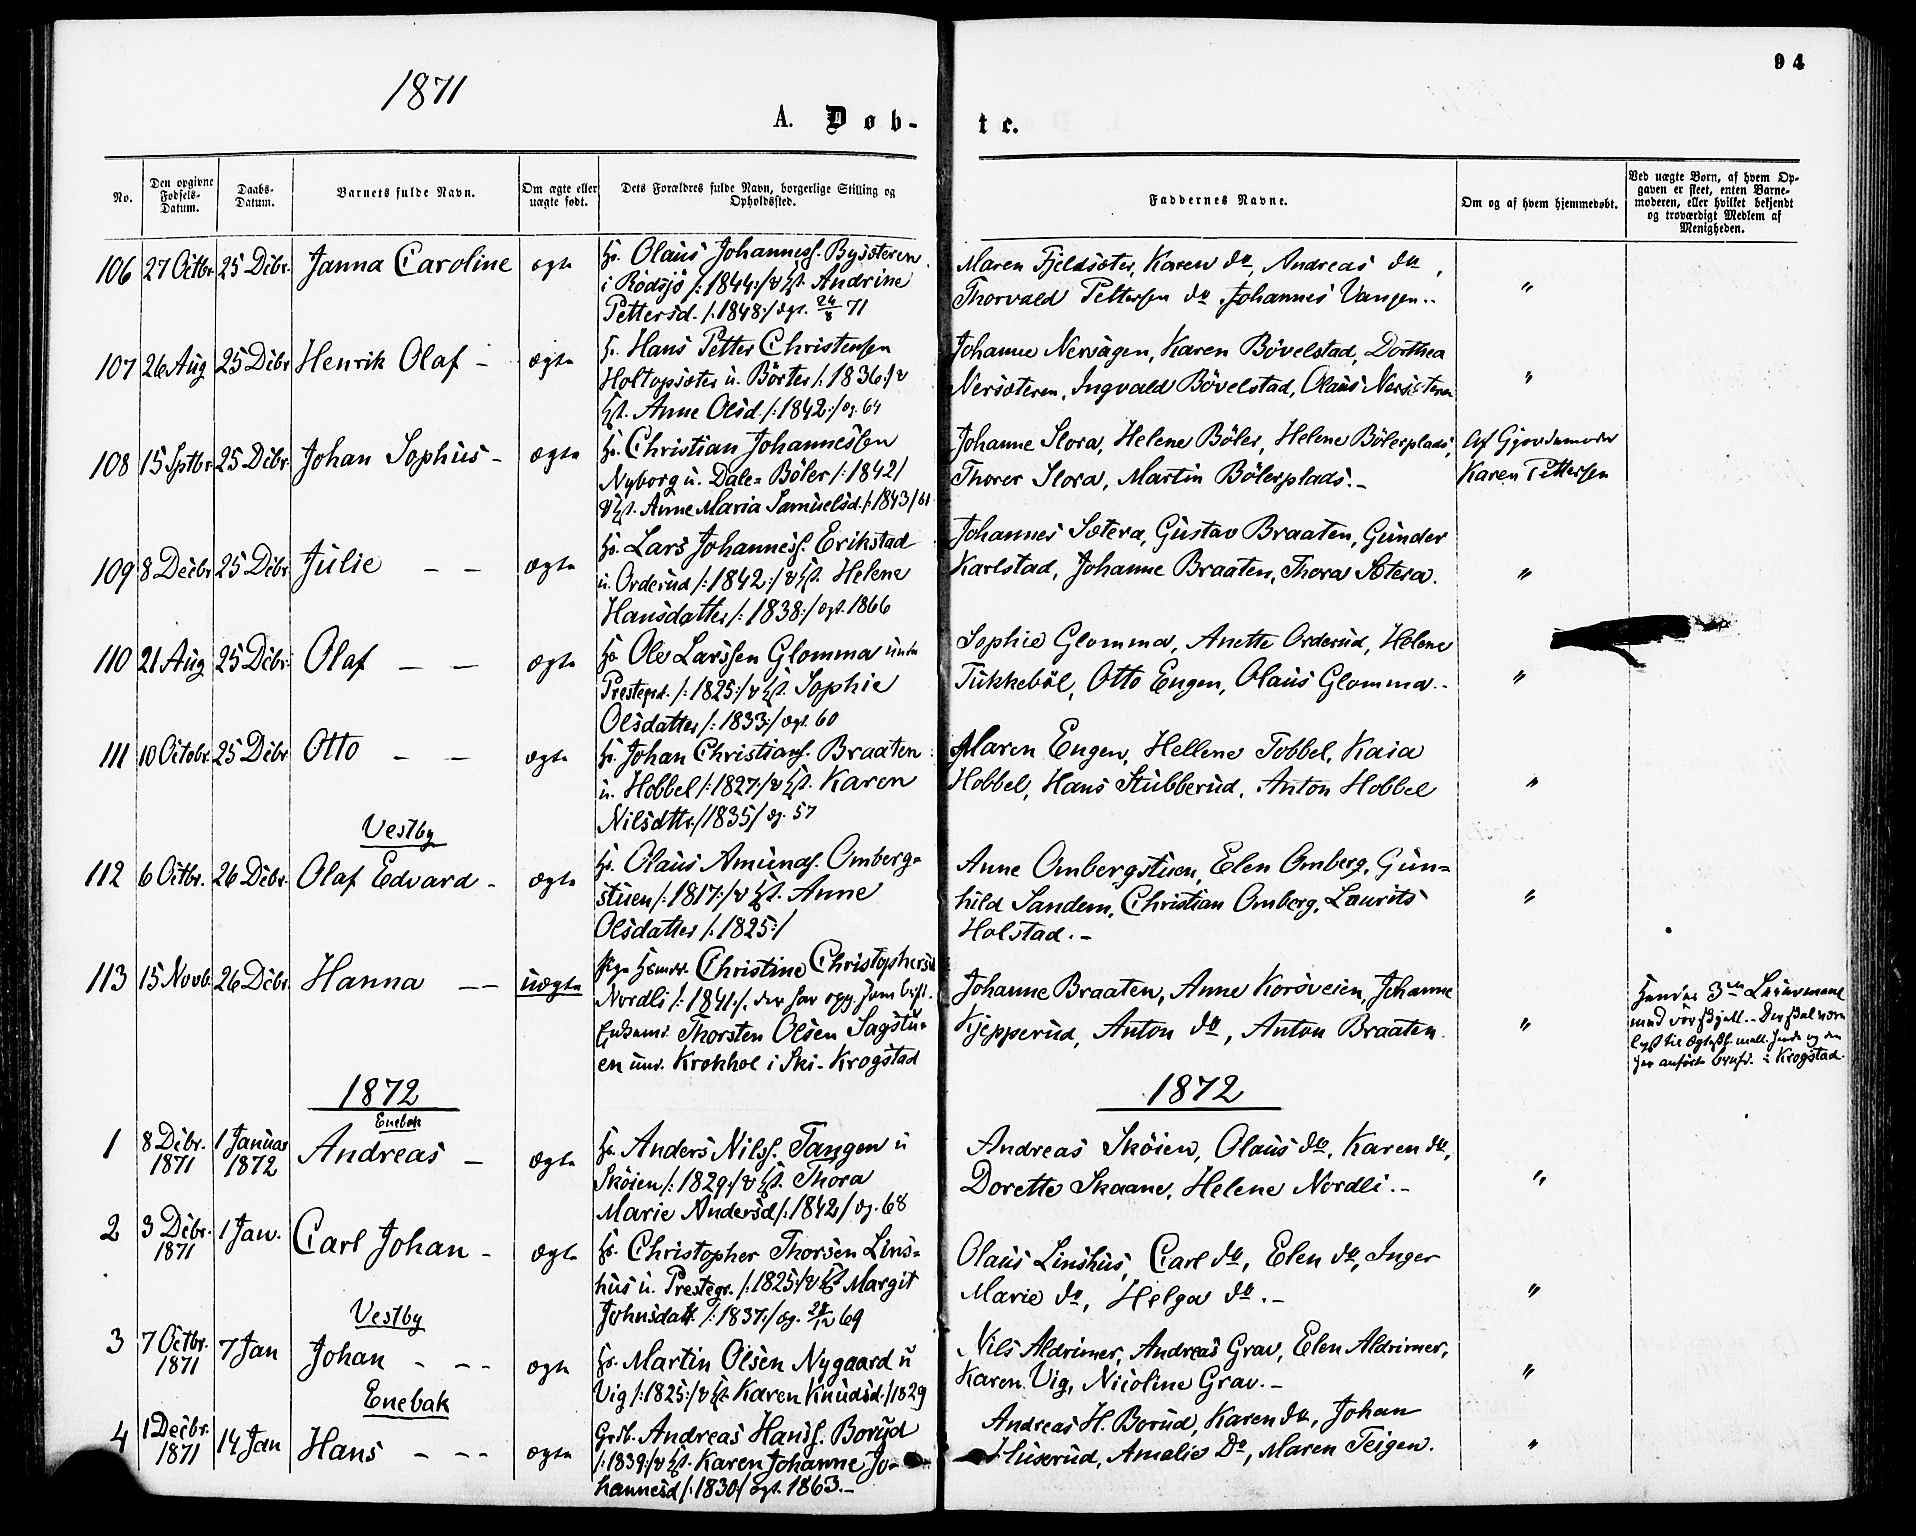 94
1871
A. Døb-
te.
No.
Den opgivne Fødsels-Datum.
Daabs-Datum.
Barnets fulde Navn.
Om ægte eller uægte født.
Dets Forældres fulde Navn, borgerlige Stilling og Opholdssted.
Faddernes Navne.
Om og af hvem hjemmedøbt.
Ved uægte Børn, af hvem Op-
gaven er skeet, enten Barne-
moderen, eller hvilket bekjendt
og troværdigt Medlem af
Menigheden.
106 27 Octbr. 25 Dcbr. Janna Caroline ægte
Olaus Johanness. Bysæteren
i Rödsjö /:1844:/ & Andrine
Pettersd. /:1848:/ ægt. 24/8 71
Maren Fjeldsæter, Karen do, Andreas do,
Thorvald Pettersen do Johannes Vangen.. "
107 26 Aug 25 Dcbr Henrik Olaf - ægte
Hans Petter Christensen
Holtopsæter u. Börter /:1836:/ &
Anne Olsd. /:1842:/ æg. 64
Johanne Nersagen, Karen Bövelstad, Dorthea
Nersæteren, Ingvald Bövelstad, Olaus Nersæteren "
108 15 Sptbr 25 Dcbr. Johan Sophus - ægte
Christian Johannessen
Nyborg u. Dale= Böler /:1842/
& Anne Maria Samuelsd. /:1843/ 61
Johanne Slora, Helene Böler, Helene Bölerplads,
Thorer Slora, Martin Bölerplads.-
Af Gjordemoder
Karen Pettersen
109 8 Decbr 25 Dcbr. Julie - - ægte
Lars Johanness. Erikstad
u. Orderud /:1842:/ & Helene
Hansdatter /:1838:/ ægt. 1866
Johannes Sætera, Gustav Braaten, Gunder
Karlstad, Johanne Braaten, Thora Sætera. "
110 21 Aug 25 Dcbr. Olaf - - ægte
Ole Larssen Glomma under
Prestegrd. /:1825:/ & Sophie
Olsdatter /:1833:/ ægt. 60
Sophie Glomma, Anette Orderud, Helene
Tukkeböl, Otto Engen, Olaus Glomma.. "
111 10 Octobr. 25 Dcbr. Otto - - ægte
Johan Christians. Braaten
u. Hobbel /:1827:/ & Karen
Nilsdttr. /1835/ æg. 57
Maren Engen, Hellene Tobbel, Kaia
Hobbel, Hans Stubberud, Anton Hobbel "
Vestby
112 6 Octbr. 26 Dcbr. Olaf Edvard - ægte
Olaus Amunds. Omberg=
stuen /:1817:/ & Anne
Olsdatter /:1825:/
Anne Ombergstuen, Elen Omberg, Gun=
hild Sandem, Christian Omberg, Laurits
Holstad.- "
113 15 Novb. 26 Dcbr. Hanna - - uægte
Pige Christine Christophersd
Nordli /:1841:/. der har opg. som
Thorsten Olsen Sagstu=
en und. Krokhol i Ski-Krogstad
Johanne Braaten, Anne Korsveien, Johanne
Kjepperud, Anton do, Anton Braaten. "
Hendes 3die Leiermaal
i Krogstad.
1872
1872
Enebak
1 8 Dcbr. 1871 1 Januar 1872 Andreas - ægte
Anders Nilss. Tangen u
Sköien /:1829:/ & Thora
Marie Andersd /:1842/ æg. 68
Andreas Sköien, Olaus do, Karen do,
Dorette Skaane, Helene Nordli.- "
2 3 Dcbr. 1871 1 Jan. Carl Johan - ægte
Christopher Thorsen Lins=
hus u. Prestegr. /:1825:/ & Margit
Johnsdatt. /:1837:/ æg. 69
Olaus Linshus, Carl do, Elen do, Inger
Marie do, Helga do.- "
Vestby
3 7 Octbr. 1871 7 Jan Johan - - - ægte
Martin Olsen Nygaard u
Vig /:1825:/ & Karen Knudsd. /1829
Nils Aldrimer, Andreas Grav, Elen Aldrimer,
Karen Vig, Nicoline Grav.- "
Enebak
4 1 Decbr. 1871 14 Jan Hans - - - ægte
Grdb. Andreas Hanss. Borud
/:1839:/ & Karen Johanne Jo-
hannesd /:1830:/ ægt. 1863.-
Andreas H. Borud, Karen do, Johan
Huserud, Amalie Do, Maren Teigen. "